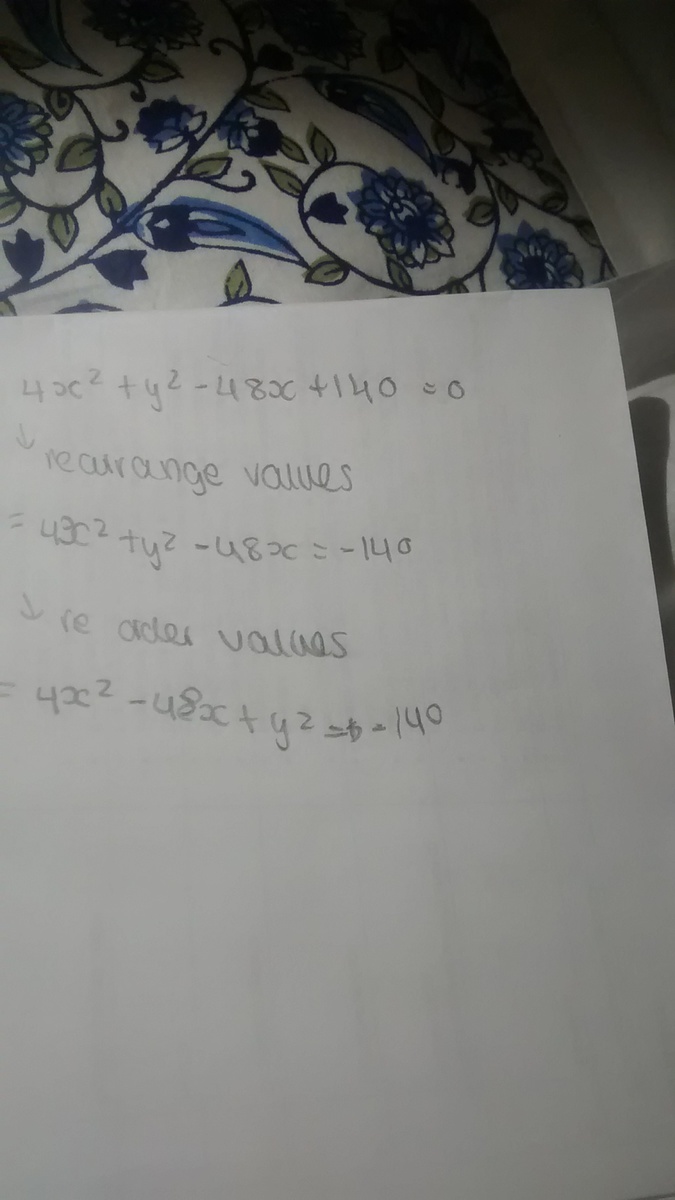 4x² + y² - 48x + 140 = 0
↓ rearrange values
= 4x² + y² - 48x = -140
↓ re order values
= 4x² - 48x + y² = -140